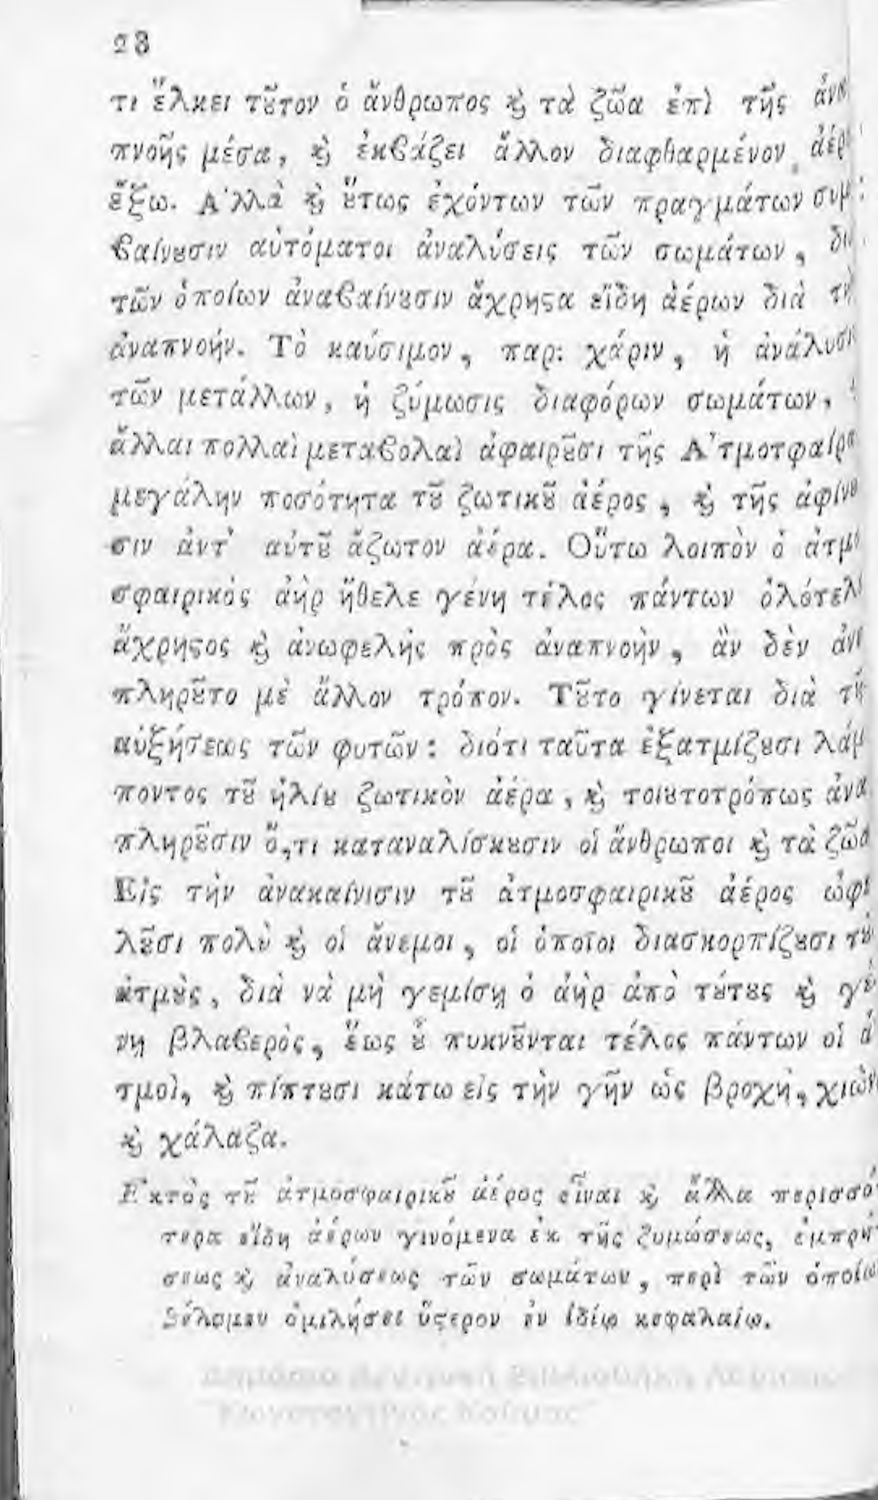 28
τι ἕλκει τȣ͂τον ὁ ἄνθρωπος ϗ τὰ ζῶα ἐπὶ τῆς ἀνα
πνοῆς μέσα, ϗ ἐκβάζει ἄλλον διαφθαρμένον ἀέρ
ἔξω. Ἀλλὰ ϗ ȣ̔́τως ἐχόντων τῶν πραγμάτων συμ
βαίνȣσιν αὐτόματοι ἀναλύσεις τῶν σωμάτων, δι
τῶν ὁποίων ἀναβαίνȣσιν ἄχρηϛα εἴδη ἀέρων διὰ τὴ
ἀναπνοήν. Τὸ καύσιμον, παρ: χάριν, ἡ ἀνάλυσι
τῶν μετάλλων, ἡ ζύμωσις διαφόρων σωμάτων,
ἄλλαι πολλαὶ μεταβολαὶ ἀφαιρȣ͂σι τῆς Ἀτμοτφαίρα
μεγάλην ποσότητα τȣ͂ ζωτικȣ͂ ἀέρος, ϗ τῆς ἀφίνȣ
σιν ἀντ' αὐτȣ͂ ἄζωτον ἀέρα. Οὕτω λοιπὸν ὁ ἀτμο
σφαιρικὸς ἀὴρ ἤθελε γένῃ τέλος πάντων ὁλότελα
ἄχρηϛος ϗ ἀνωφελὴς πρὸς ἀναπνοὴν, ἂν δὲν ἀνε
πληρȣ͂το μὲ ἄλλον τρόπον. Τȣ͂το γίνεται διὰ τῆ
αὐξήσεως τῶν φυτῶν: διότι ταῦτα ἐξατμίζȣσι λάμ
ποντος τȣ͂ ἡλίȣ ζωτικὸν ἀέρα, ϗ τοιȣτοτρόπως ἀνα
πληρȣ͂σιν ὅ,τι καταναλίσκȣσιν οἱ ἄνθρωποι ϗ τὰ ζῶα
Εἰς τὴν ἀνακαίνισιν τȣ͂ ἀτμοσφαιρικȣ͂ ἀέρος ὠφε
λȣ͂σι πολὺ ϗ οἱ ἄνεμοι, οἱ ὁποῖοι διασκορπίζȣσι τȣ̀
ἀτμȣ̀ς, διὰ νὰ μὴ γεμίσῃ ὁ ἀὴρ ἀπὸ τȣ́τȣς ϗ γέ
νῃ βλαβερὸς, ἕως ȣ̔͂ πυκνȣ͂νται τέλος πάντων οἱ ἀ
τμοὶ, ϗ πίπτȣσι κάτω εἰς τὴν γῆν ὡς βροχὴ, χιὼν
ϗ χάλαζα.
Ἐκτὸς τȣ͂ ἀτμοσφαιρικȣ͂ ἀέρος εἶναι ϗ ἄλλα περισσό
τερα εἴδη ἀέρων γινόμενα ἐκ τῆς ζυμώσεως, ἐμπρή
σεως ϗ ἀναλύσεως τῶν σωμάτων, περὶ τῶν ὁποίω
θέλομεν ὁμιλήσει ὕϛερον ἐν ἰδίῳ κεφαλαίῳ.